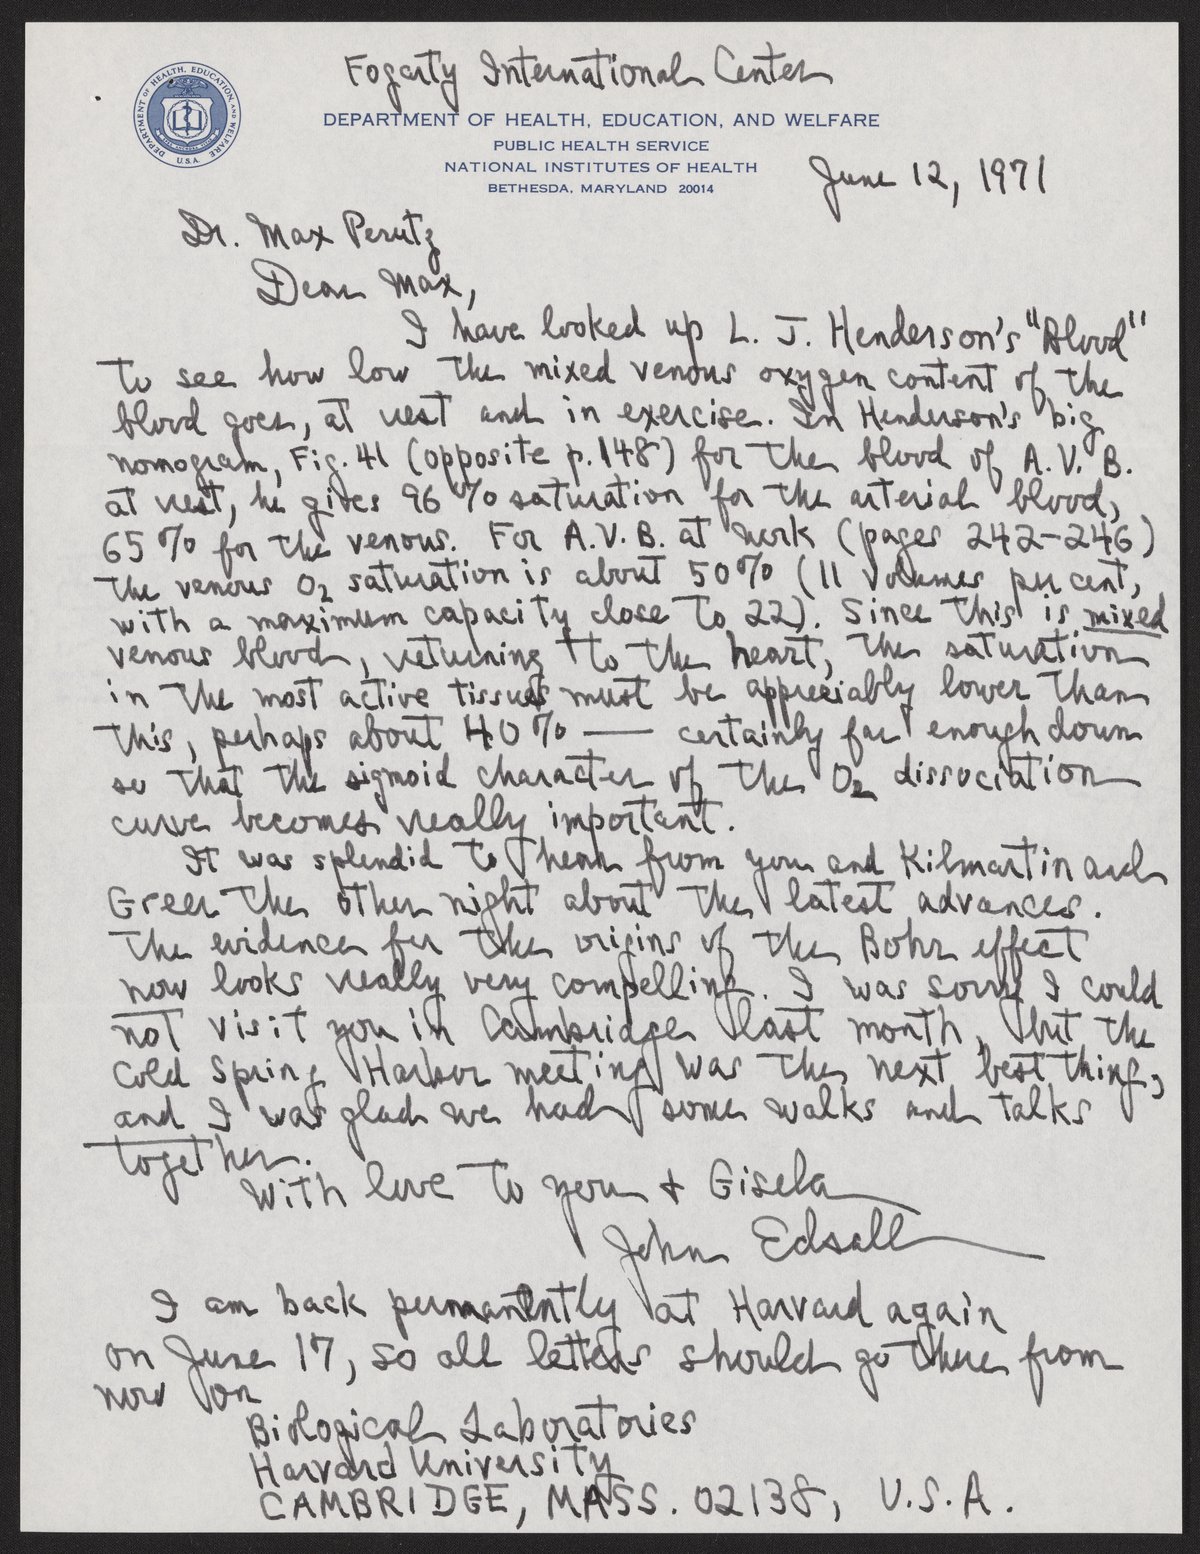 Fogarty International Center
DEPARTMENT OF HEALTH, EDUCATION, AND WELFARE
DEPARTMENT OF HEALTH, EDUCATION, AND WELFARE
U.S.A.
PUBLIC HEALTH SERVICE
NATIONAL INSTITUTES OF HEALTH
BETHESDA, MARYLAND 20014
June 12, 1971
Dr. Max Perutz
Dear Max,
I have looked up L. J. Henderson's "Blood"
to see how low the mixed venous oxygen content of the
blood goes, at rest and in exercise. In Henderson's big
nomogram, Fig. 41 (opposite p. 148) for the blood of A. V. B.
at rest, he gives 96% saturation for the arterial blood,
65% for the venous. For A. V. B. at work (pages 242-246)
the venous O2 saturation is about 50% (11 volumes per cent,
with a maximum capacity close to 22). Since this is mixed
venous blood, returning to the heart, the saturation
in the most active tissues must be appreciably lower than
this, perhaps about 40% — certainly far enough down
so that the sigmoid character of the O2 dissociation
curve becomes really important.
It was splendid to hear from you and Kilmartin and
Greer the other night about the latest advances.
The evidence for the origins of the Bohr effect
now looks really very compelling. I was sorry I could
not visit you in Cambridge last month, but the
Cold Spring Harbor meeting was the next best thing,
and I was glad we had some walks and talks
together.
With love to you + Gisela
John Edsall
I am back permanently at Harvard again
on June 17, so all letters should go there from
now on
Biological Laboratories
Harvard University
CAMBRIDGE, MASS. 02138, U.S.A.